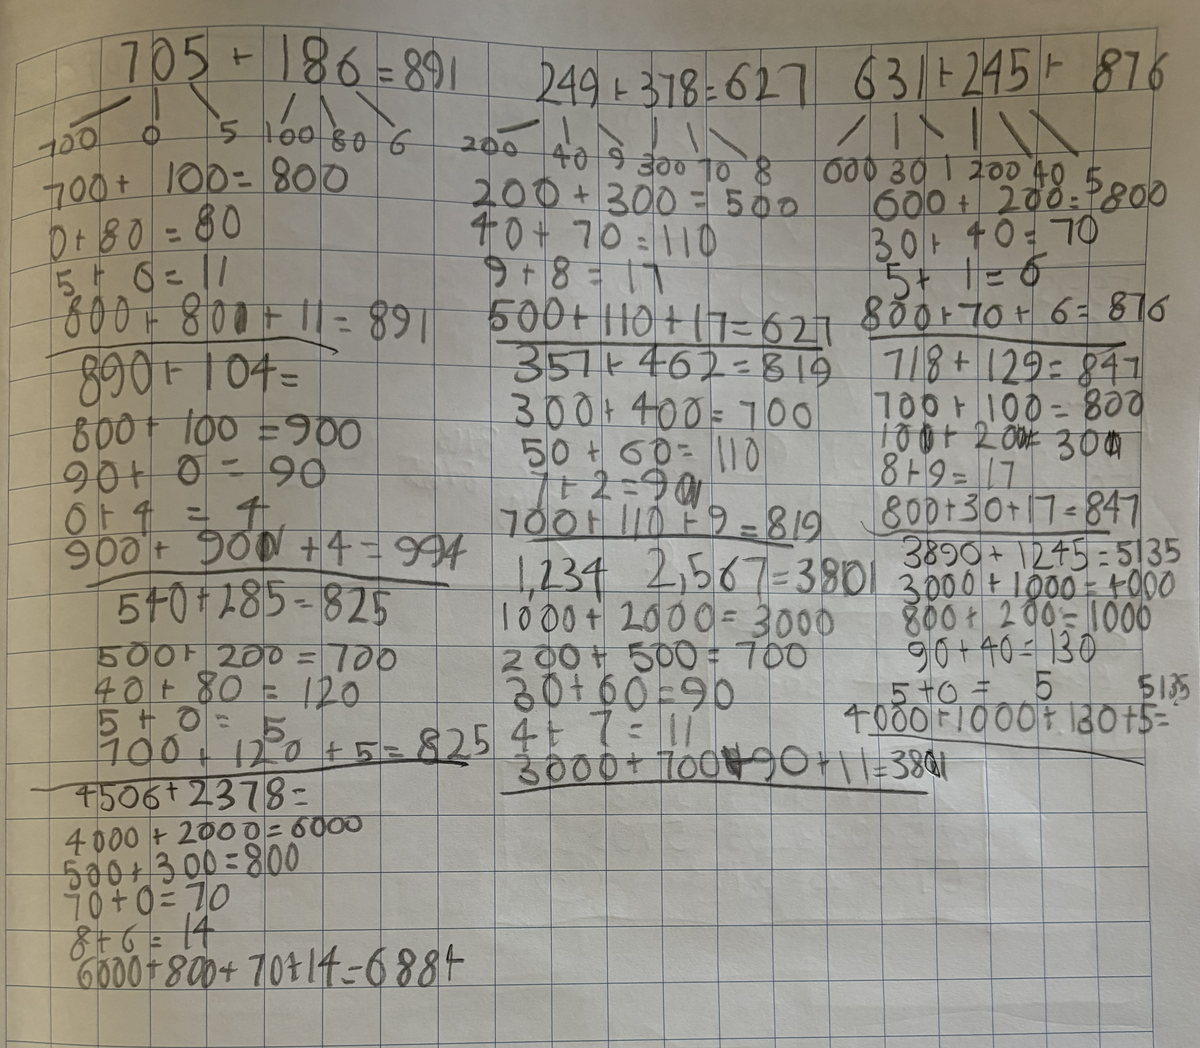 705 + 186 = 891
700 0 5 100 80 6
700 + 100 = 800
0 + 80 = 80
5 + 6 = 11
800 + 80 + 11 = 891
890 + 104 =
800 + 100 = 900
90 + 0 = 90
0 + 4 = 4
900 + 90 + 4 = 994
540 + 285 = 825
500 + 200 = 700
40 + 80 = 120
5 + 0 = 5
700 + 120 + 5 = 825
4506 + 2378 =
4000 + 2000 = 6000
500 + 300 = 800
70 + 0 = 70
8 + 6 = 14
6000 + 800 + 70 + 14 = 6884
249 + 378 = 627
200 40 9 300 70 8
200 + 300 = 500
40 + 70 = 110
9 + 8 = 17
500 + 110 + 17 = 627
357 + 462 = 819
300 + 400 = 700
50 + 60 = 110
7 + 2 = 9
700 + 110 + 9 = 819
1,234 2,567 = 3801
1000 + 2000 = 3000
200 + 500 = 700
30 + 60 = 90
4 + 7 = 11
3000 + 700 + 90 + 11 = 3801
631 + 245 + 876
600 30 1 200 40 5
600 + 200 = 800
30 + 40 = 70
5 + 1 = 6
800 + 70 + 6 = 876
718 + 129 = 847
700 + 100 = 800
10 + 20 = 30
8 + 9 = 17
800 + 30 + 17 = 847
3890 + 1245 = 5135
3000 + 1000 = 4000
800 + 200 = 1000
90 + 40 = 130
5 + 0 = 5
4000 + 1000 + 130 + 5 = 5135